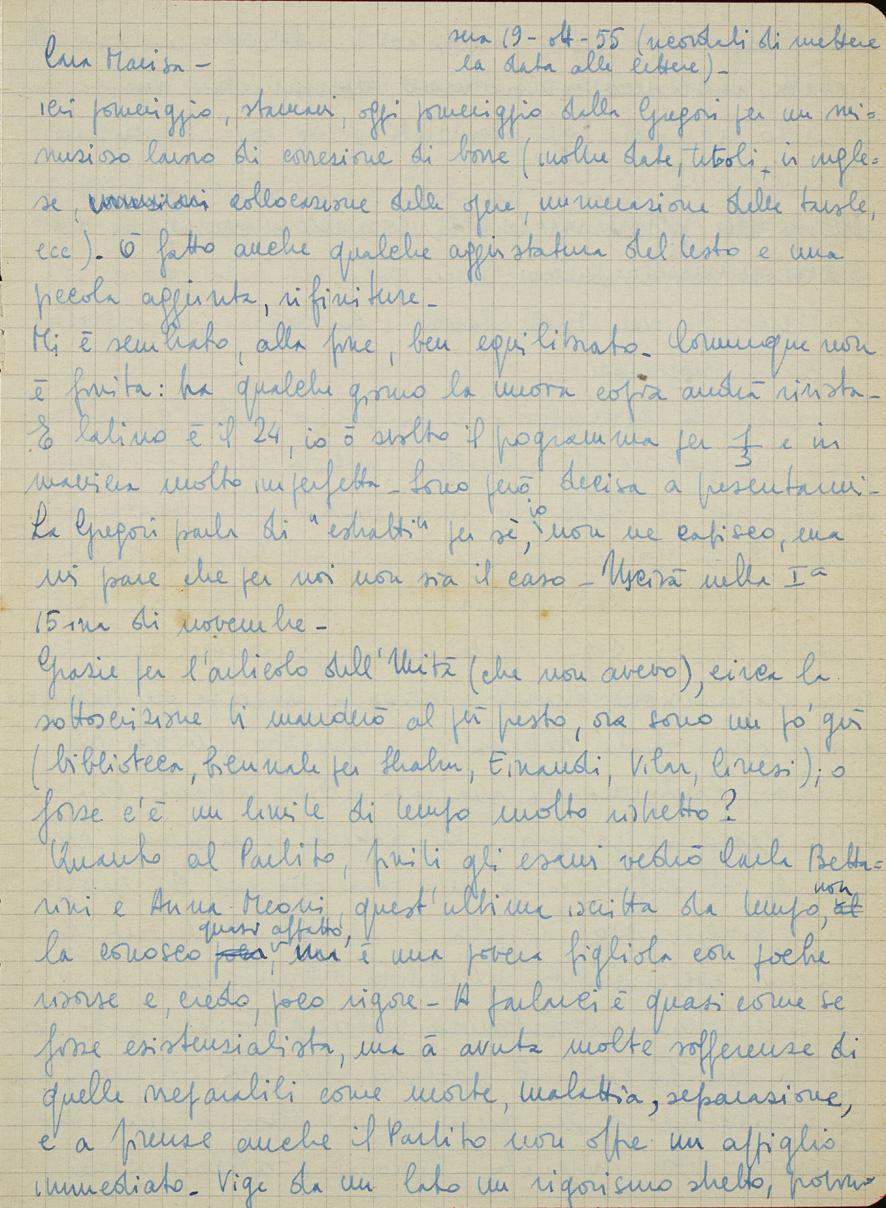 sera 19-ott-55 (ricordati di mettere
la data alle lettere)-
Cara Marisa-
ieri pomeriggio, stamani, oggi pomeriggio dalla Gregori per un mi=
nuzioso lavoro di correzione di bozze (molte date, titoli, in ingle=
se, collocazione delle opere, numerazione delle tavole,
ecc). Ò fatto anche qualche aggiustatura del testo e una
piccola aggiunta, rifiniture-
Mi è sembrato, alla fine, ben equilibrato- Comunque non
è finita: tra qualche giorno la nuova copia andrà rivista-
E latino è il 24, io ò svolto il pogramma per 1/3 e in
maniera molto imperfetta- Sono però decisa a presentarmi-
La Gregori parla di "estratti" per sè, io non ne capisco, ma
mi pare che per noi non sia il caso- Uscirà nella Iª
15ina di novembre-
Grazie per l'articolo dell'Unità (che non avevo), circa la
sottoscrizione ti manderò al più presto, ora sono un pò giù
(biblioteca, biennale per Einaudi, Vilar, ); o
forse c'è un limite di tempo molto ristretto?
Quanto al Partito, finiti gli esami vedrò Carla Betta=
rini e Anna Meoni, quest'ultima iscritta da tempo, non
la conosco quasi affatto, è una povera figliola con poche
risorse e, credo, poco rigore- A parlarci è quasi come se
fosse esistenzialista, ma à avuta molte sofferenze di
quelle irreparabili come morte, malattia, separazione,
e a Firenze anche il Partito non offre un appiglio
immediato- Vige da un lato un rigorismo stretto,